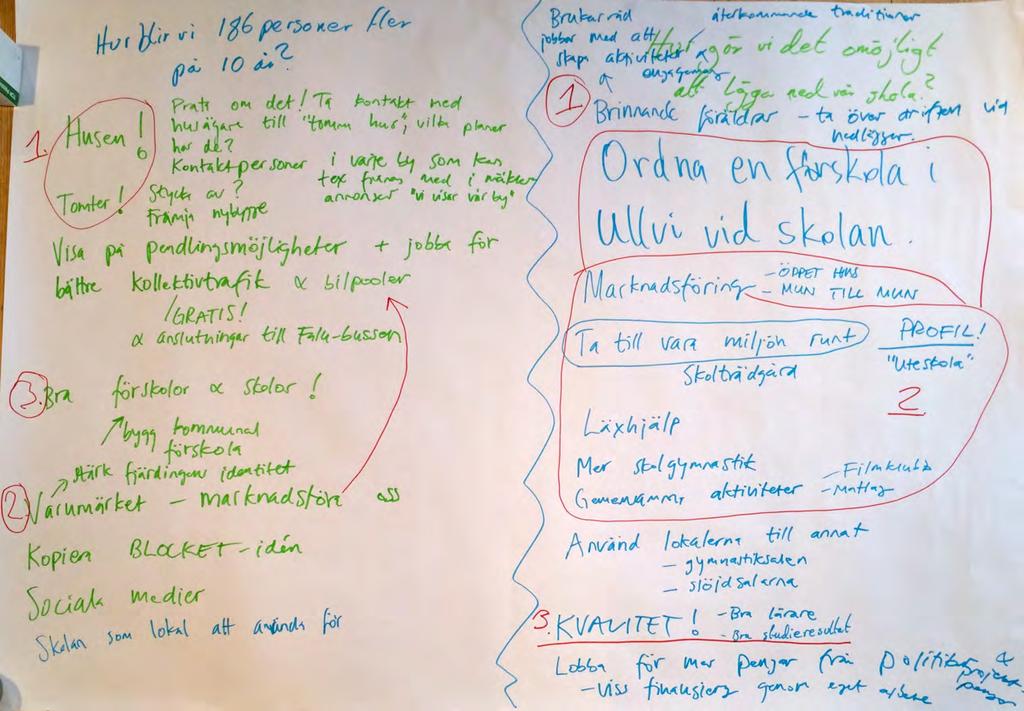 Hur blir vi 186 personer fler
på 10 år?
1.
Husen!
Prata om det! Ta kontakt med
husägare till "tomma hus", vilka planer
har de?
Kontaktpersoner i varje by som kan
tex finnas med i mäklar-
annonser "vi visar vår by"
Tomter!
Stycka av?
Främja nybygge
Visa på pendlingsmöjligheter + jobba för
bättre kollektivtrafik & bilpooler
GRATIS!
& anslutningar till Falu-bussen
3. Bra förskolor & skolor!
bygg kommunal
förskola
stärk fjärdingens identitet
2. Varumärket – marknadsföra oss
Kopiera BLOCKET-idén
Sociala medier
Skolan som lokal att använda för
Brukarråd
jobbar med att
skapa aktiviteter
engagemang
återkommande traditioner
Hur gör vi det omöjligt
att lägga ned vår skola?
1
Brinnande föräldrar – ta över driften vid
nedläggn.
Ordna en förskola i
Ullvi vid skolan.
Marknadsföring
– ÖPPET HUS
– MUN TILL MUN
Ta till vara miljön runt
Skolträdgård
PROFIL!
"Uteskola"
2
Läxhjälp
Mer skolgymnastik
Gemensamma aktiviteter
– Filmklubb
– Matlag
Använd lokalerna till annat
– gymnastiksalen
– slöjdsalarna
3. KVALITET!
– Bra lärare
– Bra studieresultat
Lobba för mer pengar från politiker &
projekt-
pengar
– viss finansiering genom eget arbete